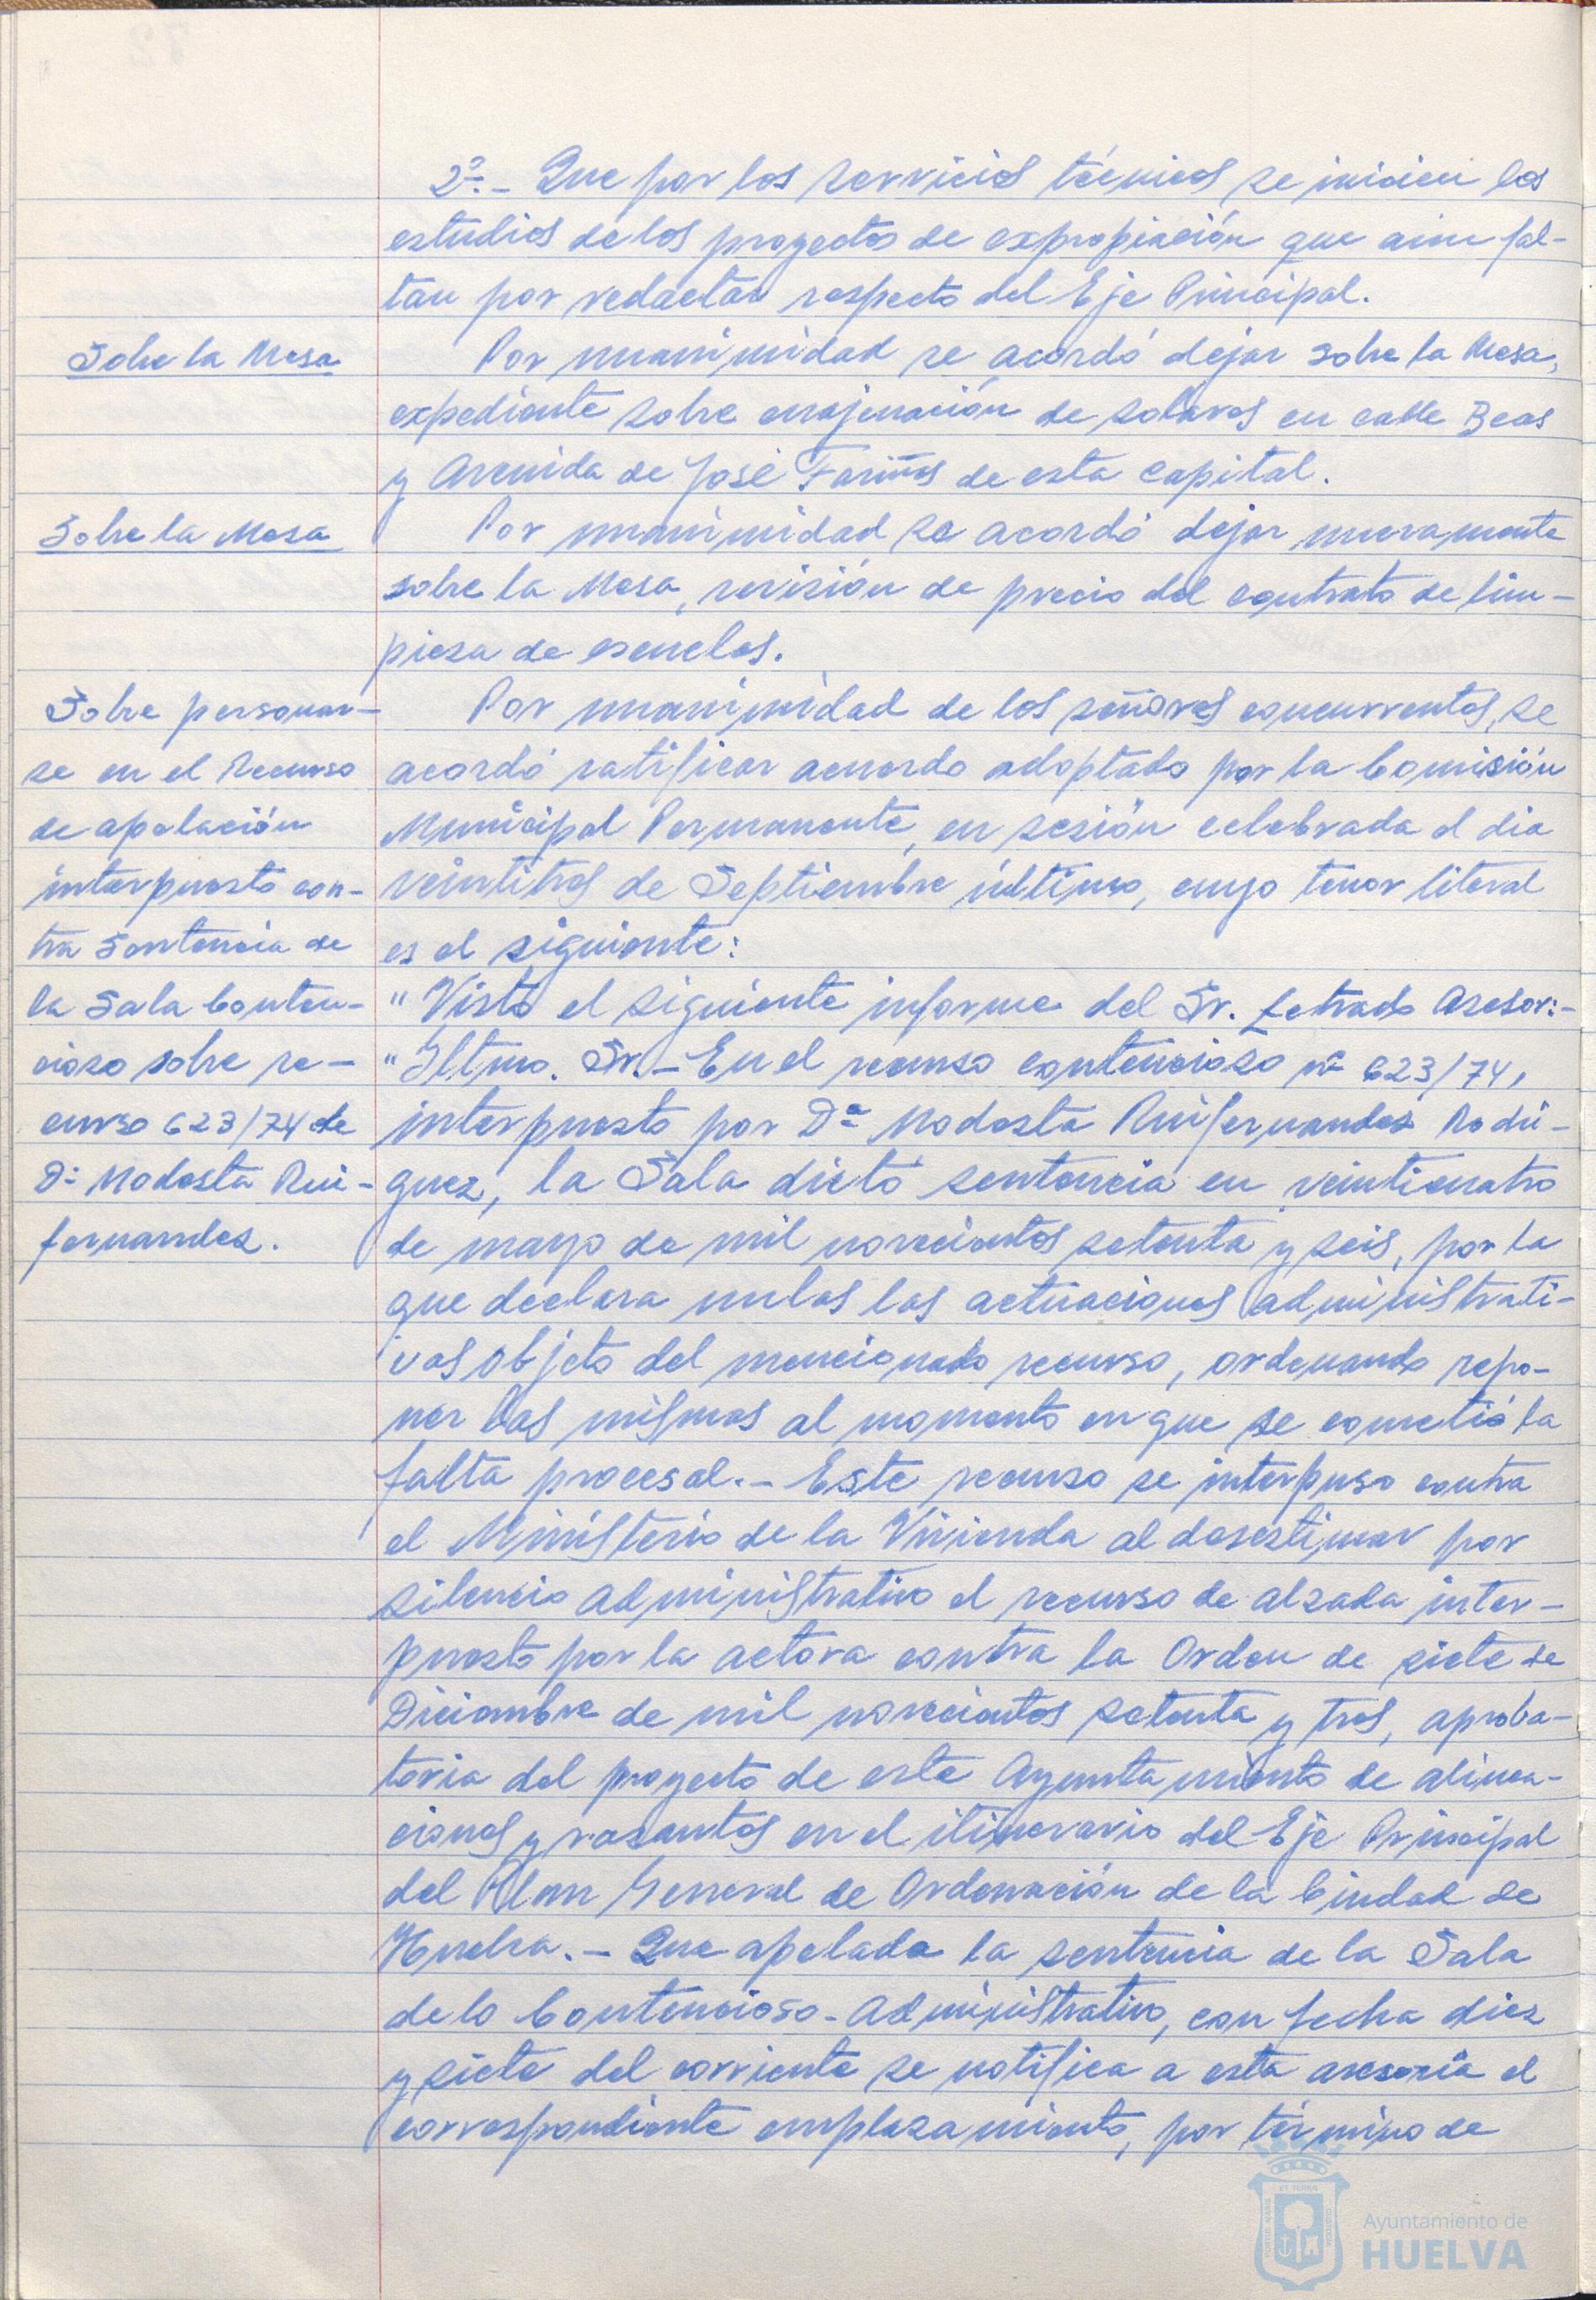 2º.- Que por los servicios técnicos se inicien los
estudios de los proyectos de expropiación que aún fal-
tan por redactar respecto del Eje Principal.
Sobre la Mesa
Por unanimidad se acordó dejar sobre la Mesa,
expediente sobre enajenación de solares en calle Beas
y Avenida de José Fariñas de esta capital.
Sobre la Mesa
Por unanimidad se acordó dejar nuevamente
sobre la Mesa, revisión de precio del contrato de lim-
pieza de escuelas.
Sobre personar-
se en el Recurso
de apelación
interpuesto con-
tra Sentencia de
la Sala Conten-
cioso sobre re-
curso 623/74 de
Dª Modesta Rui-
fernandez.
Por unanimidad de los señores concurrentes, se
acordó ratificar acuerdo adoptado por la Comisión
Municipal Permanente, en sesión celebrada el dia
veintitres de Septiembre último, cuyo tenor literal
es el siguiente:
"Visto el siguiente informe del Sr. Letrado Asesor:-
"Iltmo. Sr.- En el recurso contencioso nº 623/74,
interpuesto por Dª Modesta Ruifernandez Rodri-
guez, la Sala dictó sentencia en veinticuatro
de mayo de mil novecientos setenta y seis, por la
que declara nulas las actuaciones administrati-
vas objeto del mencionado recurso, ordenando repo-
ner las mismas al momento en que se cometió la
falta procesal.- Este recurso se interpuso contra
el Ministerio de la Vivienda al desestimar por
silencio administrativo el recurso de alzada inter-
puesto por la actora contra la Orden de siete de
Diciembre de mil novecientos setenta y tres, aproba-
toria del proyecto de este Ayuntamiento de alinea-
ciones y rasantes en el itinerario del Eje Principal
del Plan General de Ordenación de la Ciudad de
Huelva.- Que apelada la sentencia de la Sala
de lo Contencioso-Administrativo, con fecha diez
y siete del corriente se notifica a esta asesoria el
correspondiente emplazamiento, por término de
Ayuntamiento de
HUELVA